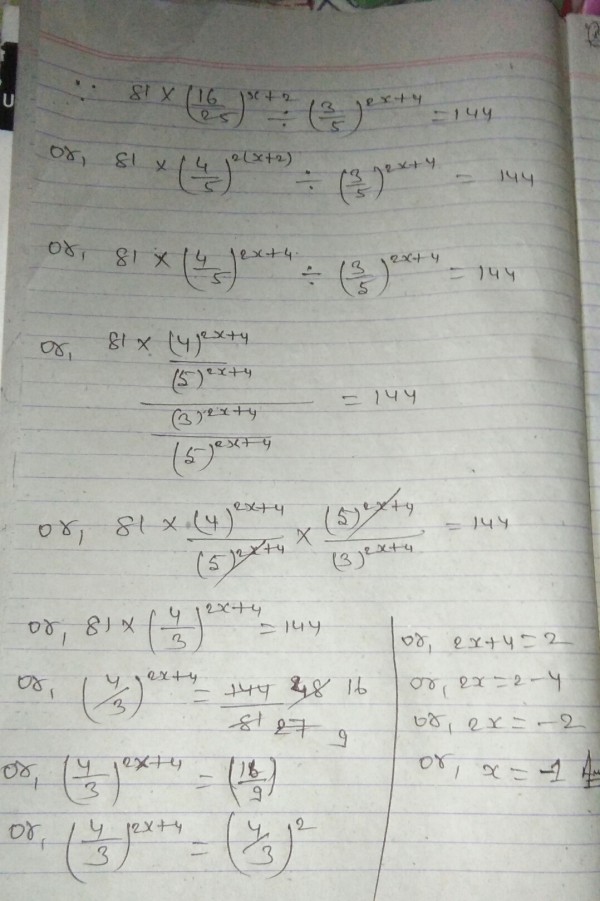 ∵ 81 × (16/25)^(x+2) ÷ (3/5)^(2x+4) = 144
or, 81 × (4/5)^(2(x+2)) ÷ (3/5)^(2x+4) = 144
or, 81 × (4/5)^(2x+4) ÷ (3/5)^(2x+4) = 144
or, 81 × ((4)^(2x+4)/(5)^(2x+4))/((3)^(2x+4)/(5)^(2x+4)) = 144
or, 81 × (4)^(2x+4)/(5)^(2x+4) × (5)^(2x+4)/(3)^(2x+4) = 144
or, 81 × (4/3)^(2x+4) = 144
or, (4/3)^(2x+4) = 144 48 16/81 27 9
or, (4/3)^(2x+4) = (16/9)
or, (4/3)^(2x+4) = (4/3)^2
or, 2x+4 = 2
or, 2x = 2-4
or, 2x = -2
or, x = -1
U